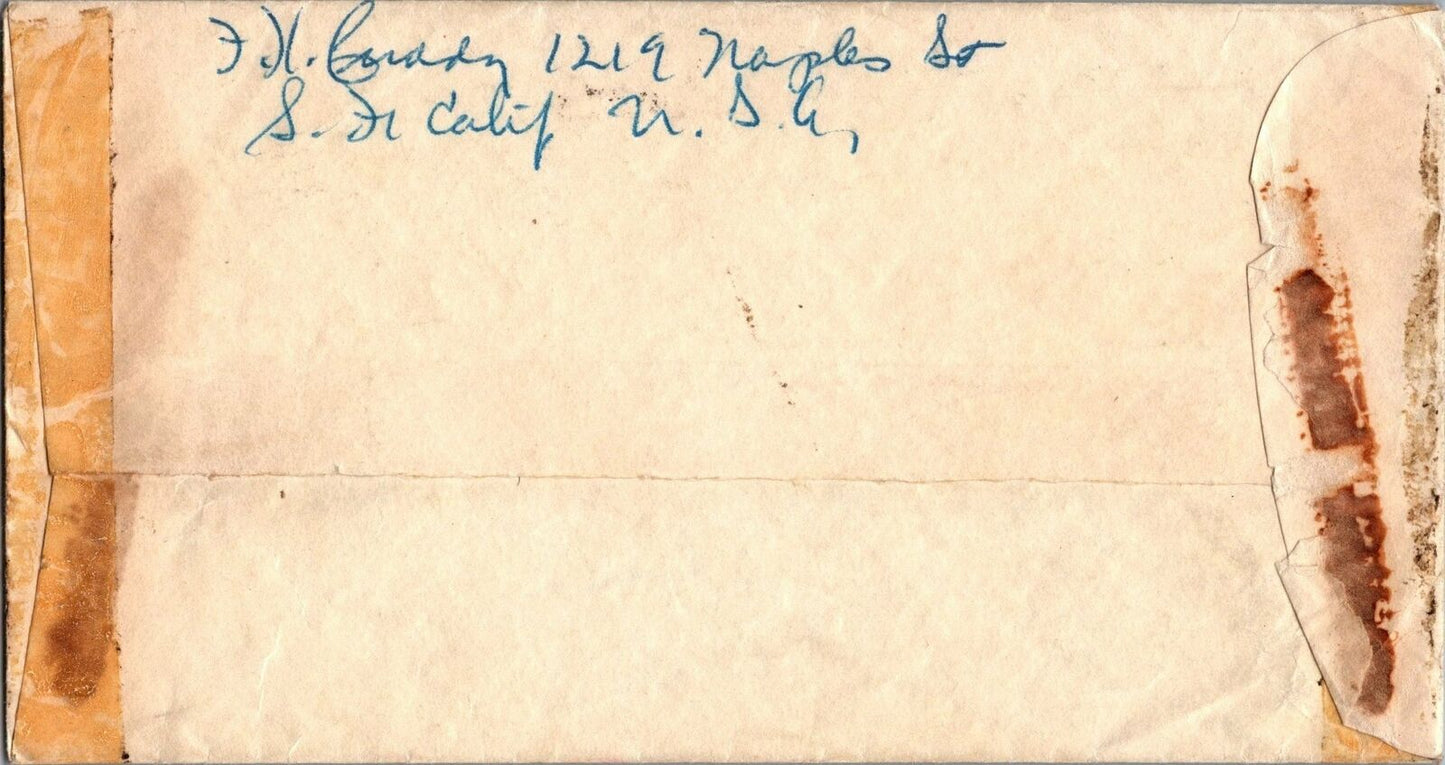 F. H. 1219 Naples St
S. Fr Calif U. S. A,